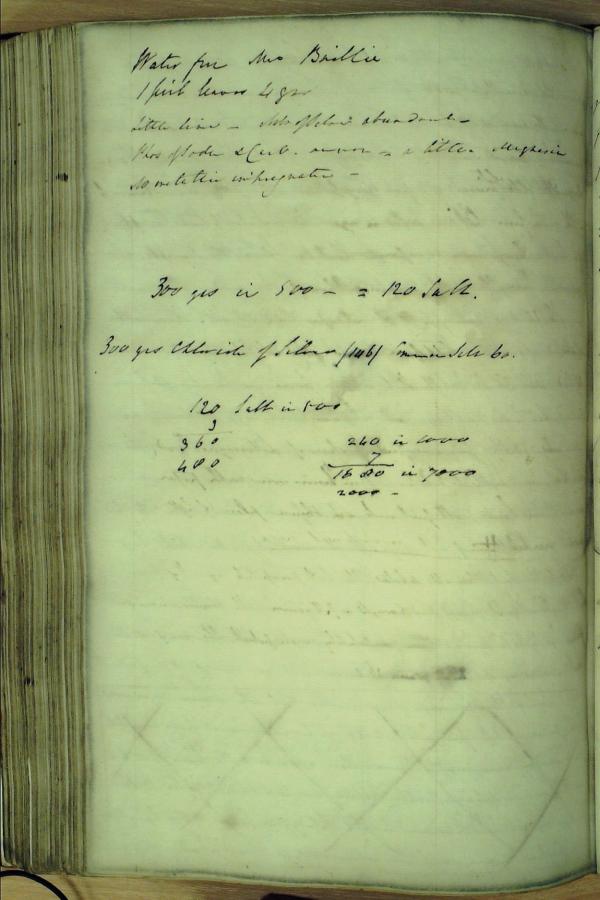 Water from Mrs Baillie
1 pint leaves 4 grs
little lime - abundant -
Phos of Soda & Carb. - a little Magnesia
No metallic impregnation -
300 grs in 500 - = 120 Salt.
300 grs Chloride of Silver (146) Common Salt 60.
120 Salt in 500
3
360
480
240 in 1000
7
1680 in 7000
2000 -